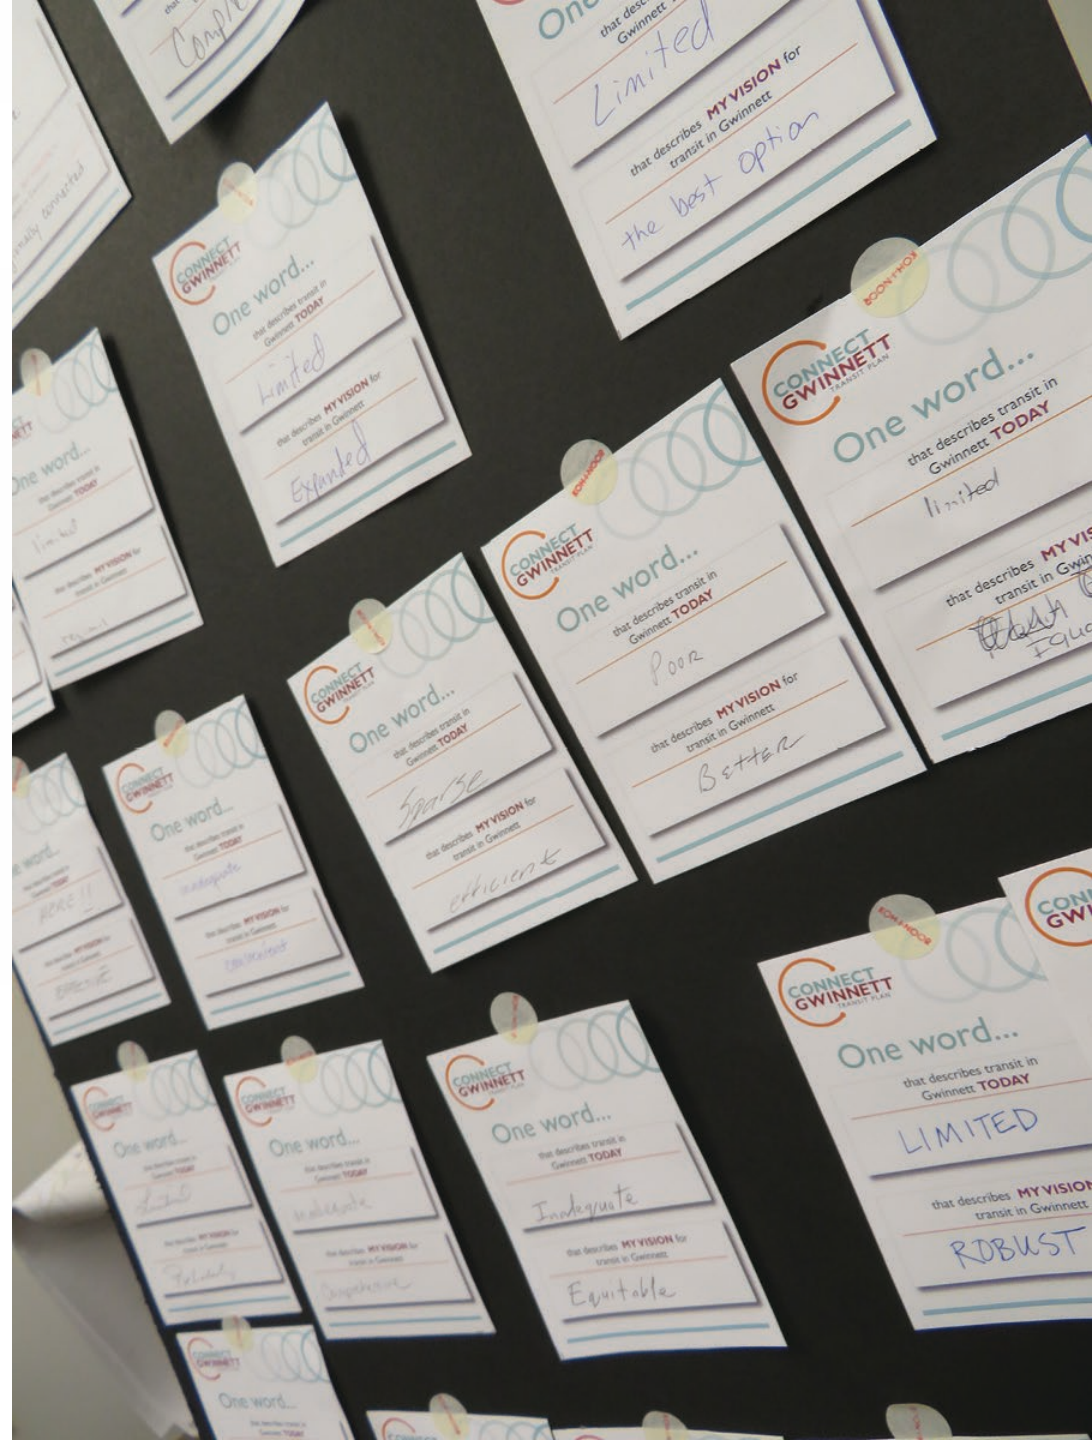 that
Comple
nally connected
One word...
that des
Gwinnett
Limited
that describes MY VISION for
transit in Gwinnett
the best option
CONNECT
GWINNETT
One word...
that describes transit in
Gwinnett TODAY
Limited
that describes MY VISION for
transit in Gwinnett
Expanded
KOH-I-NOOR
CONNECT
GWINNETT
TRANSIT PLAN
One word...
that describes transit in
Gwinnett TODAY
limited
that describes MY VIS
transit in Gwin
Equa
ETT
One word...
that describes transit in
Gwinnett TODAY
limited
that describes MY VISION for
transit in Gwinnett
KOH-I-NOOR
CONNECT
GWINNETT
TRANSIT PLAN
One word...
that describes transit in
Gwinnett TODAY
POOR
that describes MY VISION for
transit in Gwinnett
BETTER
CONNECT
GWINNETT
One word...
that describes transit in
Gwinnett TODAY
Sparse
that describes MY VISION for
transit in Gwinnett
efficient
CONNECT
GWINNETT
One word...
that describes transit in
Gwinnett TODAY
inadequate
that describes MY VISION for
transit in Gwinnett
convenient
e word...
HERE!!
KOH-I-NOOR
CONNECT
GWINNETT
TRANSIT PLAN
One word...
that describes transit in
Gwinnett TODAY
LIMITED
that describes MY VISION
transit in Gwinnett
ROBUST
CONN
GWI
CONNECT
GWINNETT
One word...
that describes transit in
Gwinnett TODAY
Inadequate
that describes MY VISION for
transit in Gwinnett
Equitable
CONNECT
GWINNETT
One word...
that describes transit in
Gwinnett TODAY
that describes MY VISION for
transit in Gwinnett
Comprehensive
CONNECT
GWINNETT
One word...
that describes transit in
Gwinnett TODAY
that describes MY VISION for
transit in Gwinnett
CONNECT
GWINNETT
One word...
that describes transit in
Gwinnett TODAY
CONNECT